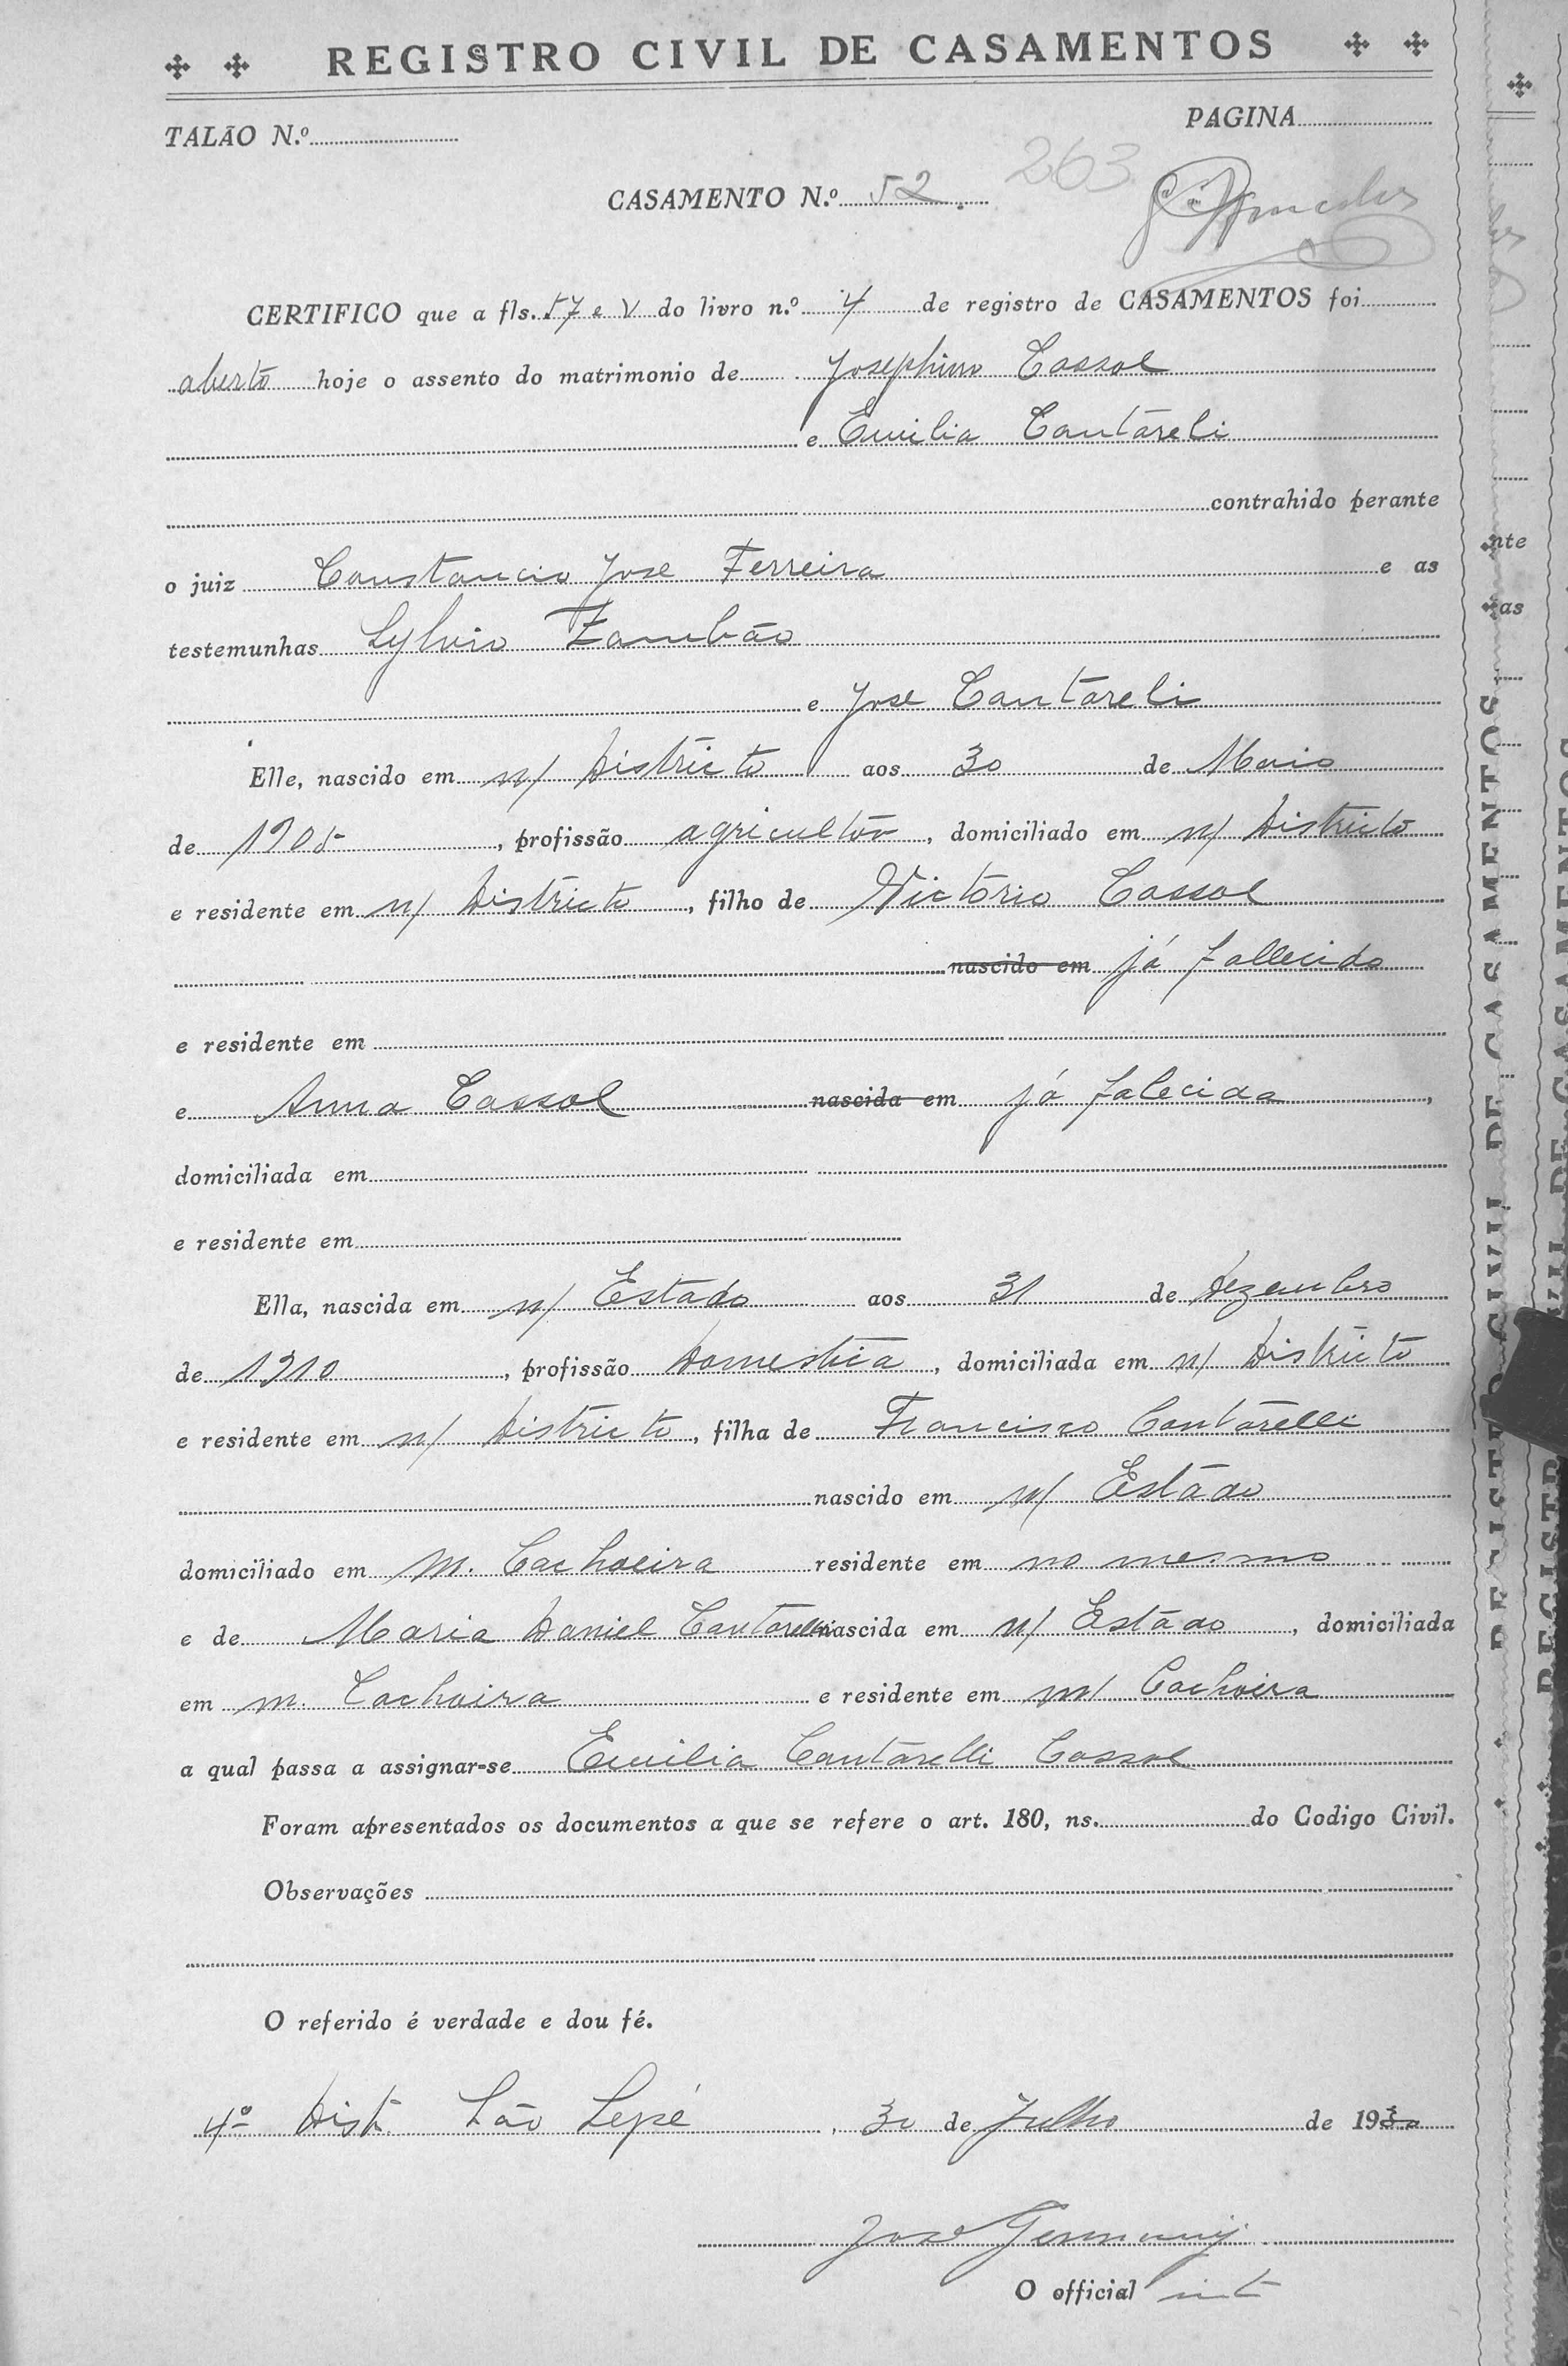 REGISTRO CIVIL DE CASAMENTOS
TALÃO N.º PAGINA
CASAMENTO N.º 52. 263
CERTIFICO que a fls. 57 e V do livro n.º 4 de registro de CASAMENTOS foi
aberto hoje o assento do matrimonio de Josephino Cassol
e Emilia Cantareli
contrahido perante
o juiz Constancio José Ferreira e as
testemunhas Sylvio Zambão
e José Cantareli
Elle, nascido em n/ Districto aos 30 de Maio
de 1905, profissão agricultor, domiciliado em n/ Districto
e residente em n/ Districto, filho de Victorio Cassol
nascido em já fallecido
e residente em
e Anna Cassol nascida em já falecida,
domiciliada em
e residente em
Ella, nascida em n/ Estado aos 31 de Dezembro
de 1910, profissão Domestica, domiciliada em n/ Districto
e residente em n/ Districto, filha de Francisco Cantarelli
nascido em n/ Estado
domiciliado em M. Cachoeira residente em no mesmo
e de Maria Daniel Cantarelli nascida em n/ Estado, domiciliada
em m. Cachoeira e residente em m/ Cachoeira
a qual passa a assignar-se Emilia Cantarelli Cassol
Foram apresentados os documentos a que se refere o art. 180, ns. do Codigo Civil.
Observações
O referido é verdade e dou fé.
4º Dist. São Sepé, 30 de Julho de 1930
José Germany
O official int